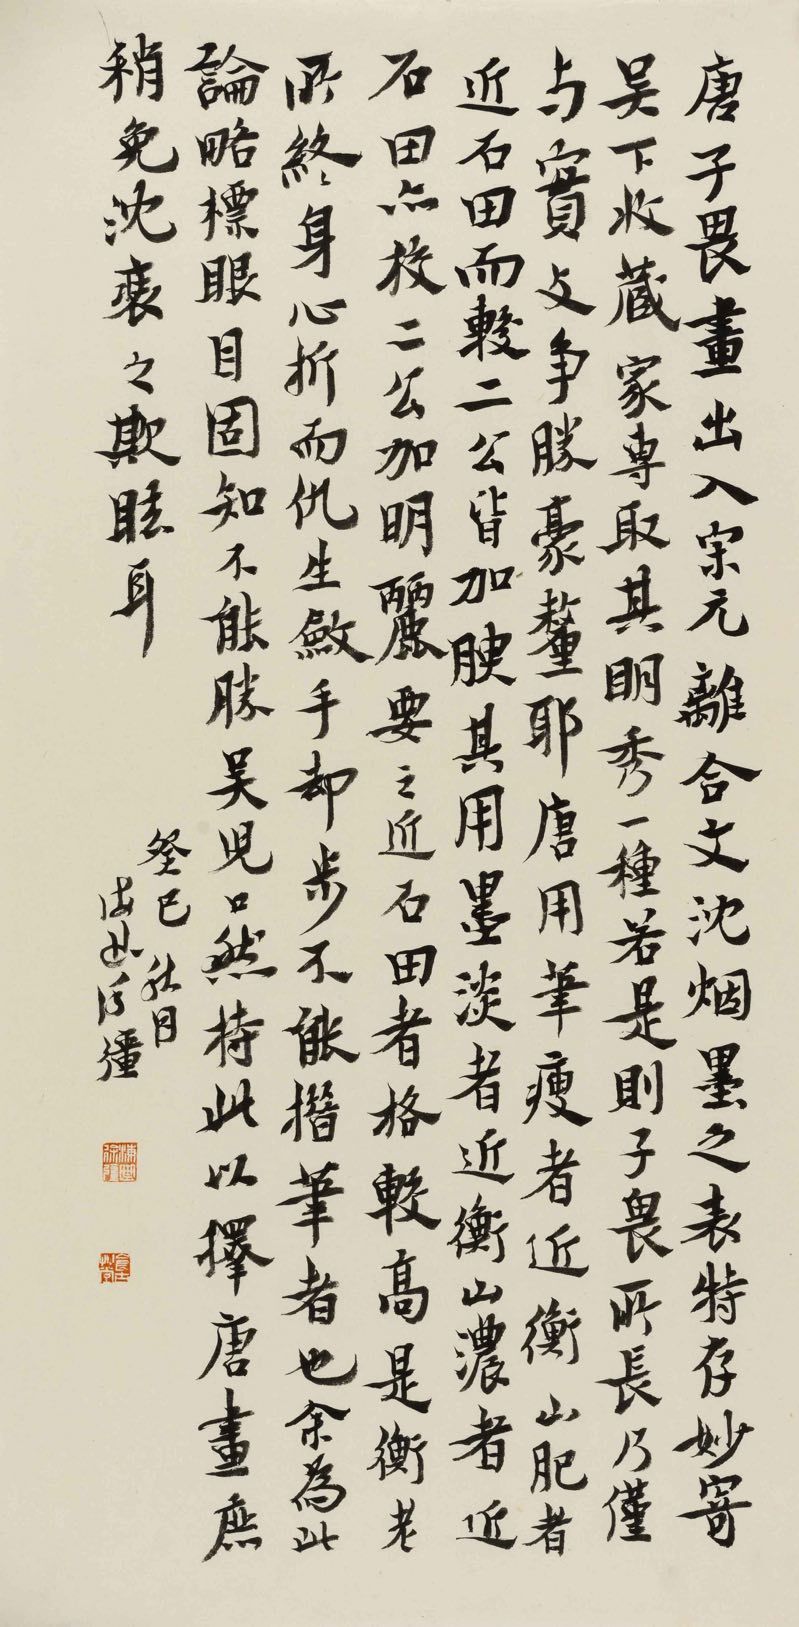 唐子畏畫出入宋元離合文沈烟墨之表特存妙寄
吴下收藏家専取其明秀一種若是則子畏所長乃僅
与實父争勝豪釐耶唐用筆瘦者近衡山肥者
近石田而較二公皆加腴其用墨淡者近衡山濃者近
石田亦校二公加明麗要之近石田者格較高是衡老
所終身心折而仇生斂手却步不能措筆者也余為此
論略標眼目固知不能勝吴児口然持此以擇唐畫庶
稍免沈裘之欺眩耳
癸巳秋日